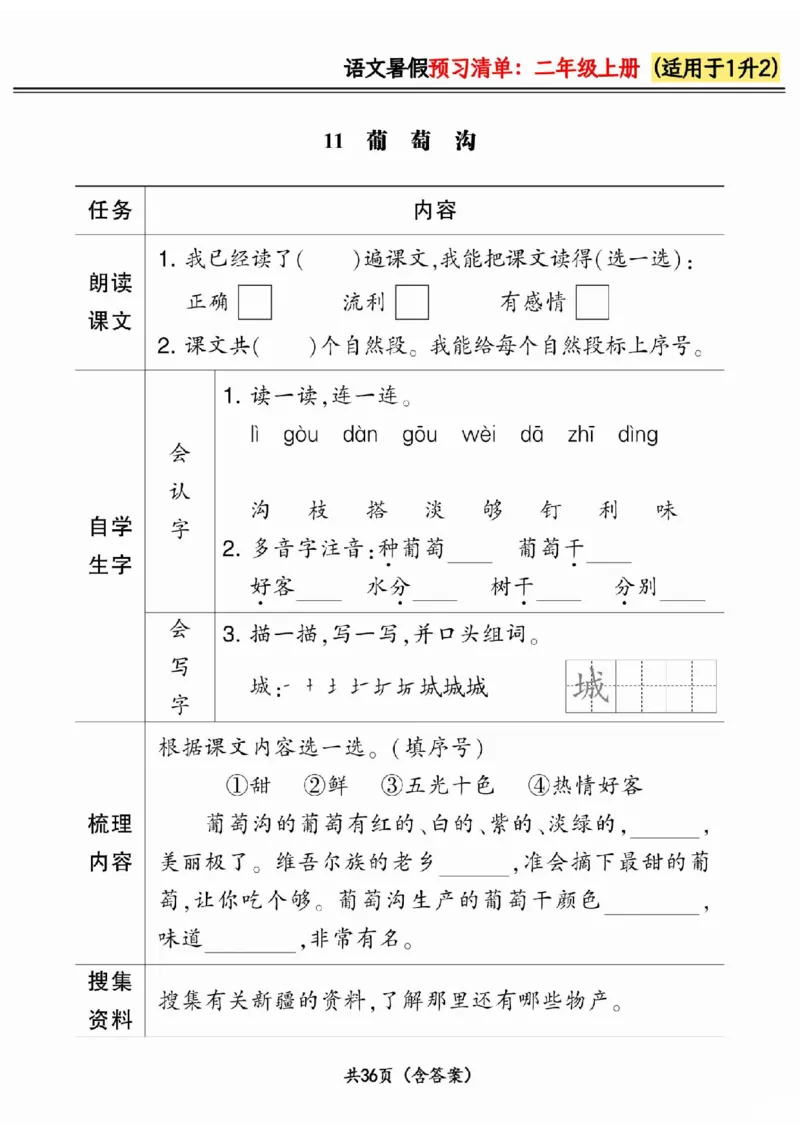 语文暑假预习清单：二年级上册（适用于1升2）
11 葡 萄 沟
任务 内容
朗读课文
1. 我已经读了(  )遍课文,我能把课文读得(选一选):
正确 流利 有感情
2. 课文共(  )个自然段。我能给每个自然段标上序号。
自学生字
会认字
1. 读一读,连一连。
lì gòu dàn gōu wèi dā zhī dìng
沟 枝 搭 淡 够 钉 利 味
2. 多音字注音:种葡萄____ 葡萄干____
好客____ 水分____ 树干____ 分别____
会写字
3. 描一描,写一写,并口头组词。
城: 城城城 城
梳理内容
根据课文内容选一选。(填序号)
①甜 ②鲜 ③五光十色 ④热情好客
葡萄沟的葡萄有红的、白的、紫的、淡绿的,______,
美丽极了。维吾尔族的老乡______,准会摘下最甜的葡
萄,让你吃个够。葡萄沟生产的葡萄干颜色________,
味道________,非常有名。
搜集资料
搜集有关新疆的资料,了解那里还有哪些物产。
共36页（含答案）